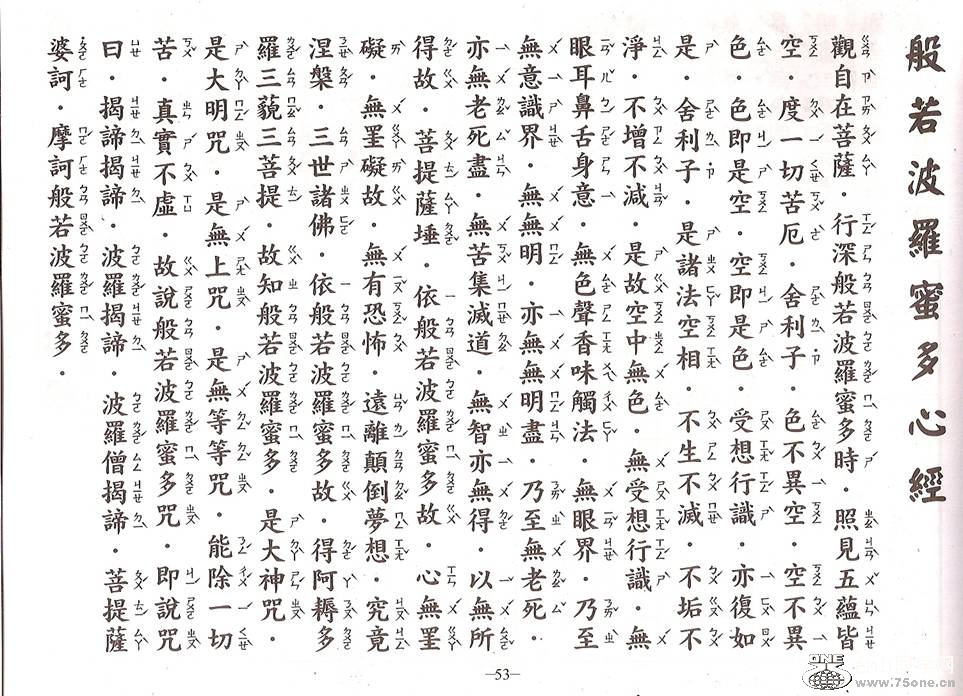 般若波羅蜜多心經
觀自在菩薩．行深般若波羅蜜多時．照見五蘊皆
空．度一切苦厄．舍利子．色不異空．空不異
色．色即是空．空即是色．受想行識．亦復如
是．舍利子．是諸法空相．不生不滅．不垢不
淨．不增不減．是故空中無色．無受想行識．無
眼耳鼻舌身意．無色聲香味觸法．無眼界．乃至
無意識界．無無明．亦無無明盡．乃至無老死．
亦無老死盡．無苦集滅道．無智亦無得．以無所
得故．菩提薩埵．依般若波羅蜜多故．心無罣
礙．無罣礙故．無有恐怖．遠離顛倒夢想．究竟
涅槃．三世諸佛．依般若波羅蜜多故．得阿耨多
羅三藐三菩提．故知般若波羅蜜多．是大神咒．
是大明咒．是無上咒．是無等等咒．能除一切
苦．真實不虛．故說般若波羅蜜多咒．即說咒
曰．揭諦揭諦．波羅揭諦．波羅僧揭諦．菩提薩
婆訶．摩訶般若波羅蜜多．
—53—
ONE
www.75one.cn